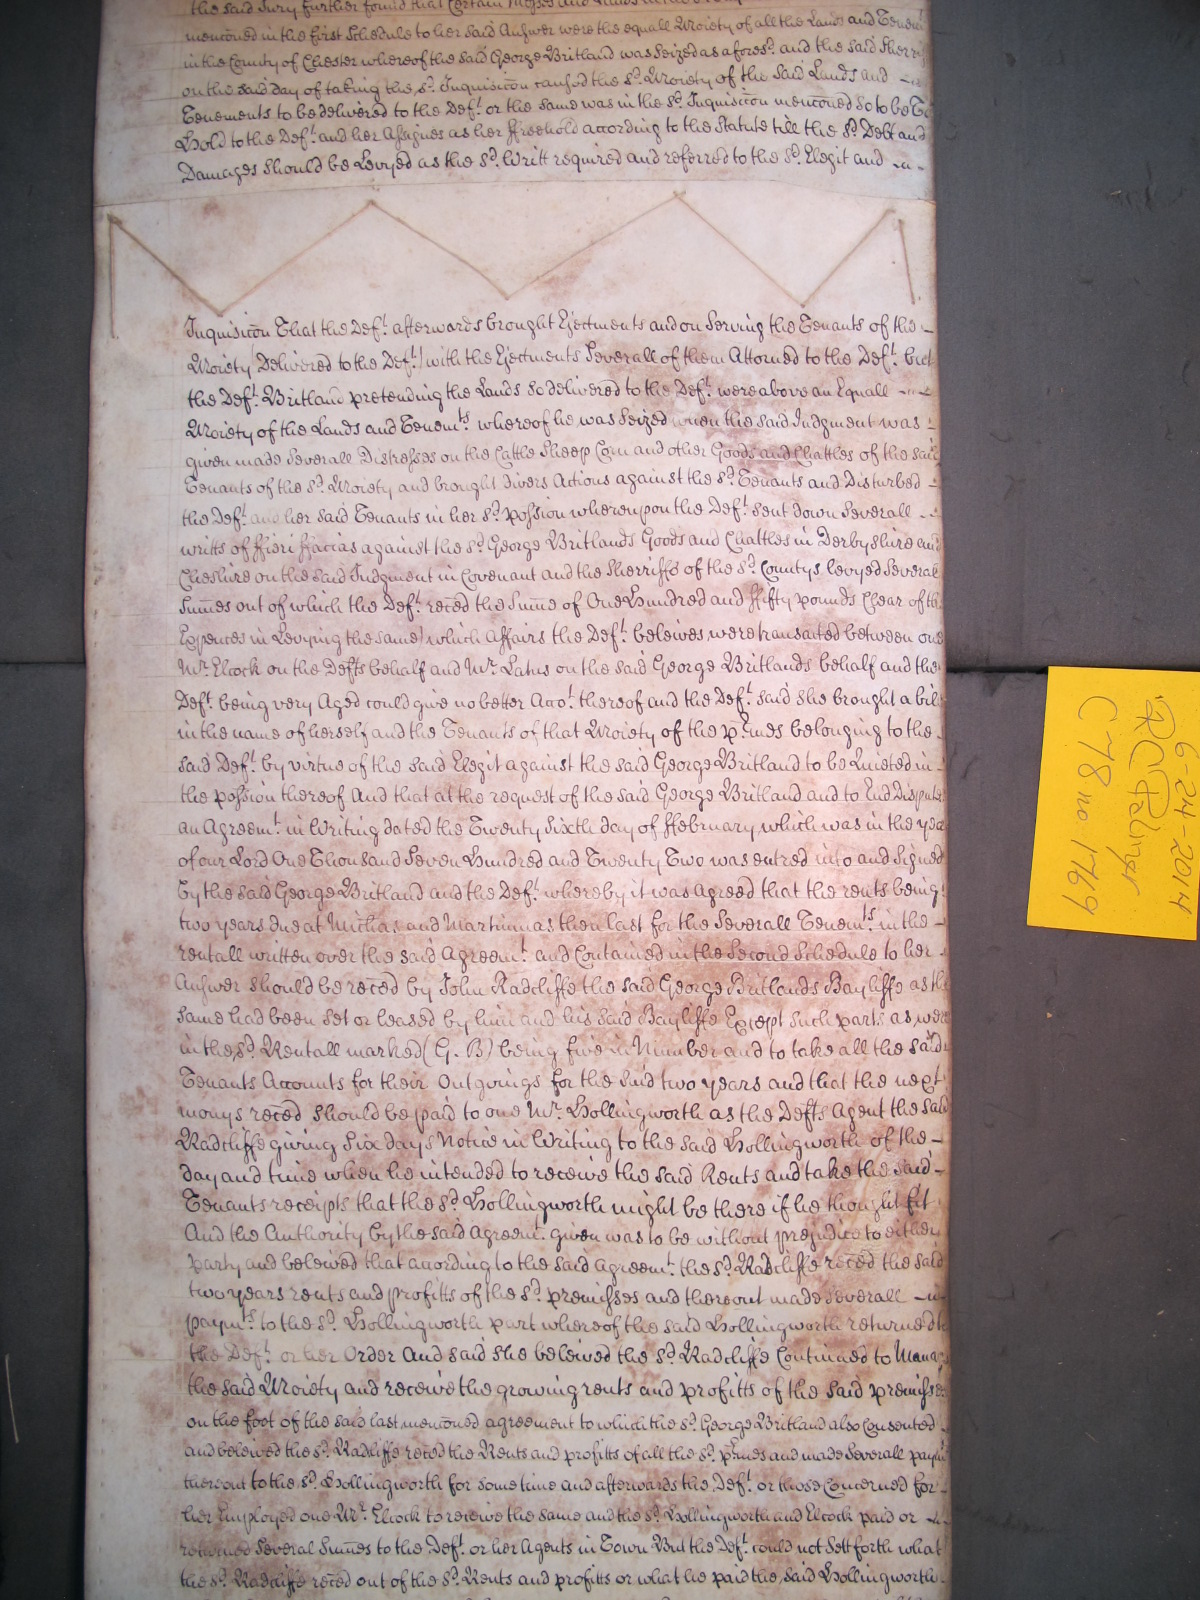 the said Jury further found that Certain Messes and Lands
mencōned in the first Schedule to her said Answer were the equall Moiety of all the Lands and Tenem
in the County of Chester whereof the said George Britland was Seized as afores.d and the said Sherr
on the said day of taking the s.d Inquisicōn caused the s.d Moiety of the said Lands and
Tenements to be delivered to the Def.t or the same was in the s.d Inquisicōn mencōned so to be To
Hold to the Def.t and her Assignes as her ffreehold according to the Statute till the s.d Debt and
Damages should be Levyed as the s.d Writt required and referred to the s.d Elegit and
Inquisicōn That the Def.t afterwards brought Ejectments and on Serving the Tenants of the
Moiety (Delivered to the Def.t) with the Ejectments Severall of them Attorned to the Def.t but
the Def.t Britland pretending the Lands so delivered to the Def.t were above an Equall
Moiety of the Lands and Tenem.ts whereof he was Seized when the said Judgment was
given made Severall Distresses on the Cattle Sheep Corn and other Goods and Chattles of the said
Tenants of the s.d Moiety and brought divers Actions against the s.d Tenants and Disturbed
the Def.t and her said Tenants in her s.d possion whereupon the Def.t sent down Severall
writts of ffieri ffacias against the s.d George Britlands Goods and Chattles in Derbyshire and
Cheshire on the said Judgment in Covenant and the Sherriffs of the s.d Countys levyed Severall
Sum̄es out of which the Def.t reced the Sum̄e of One Hundred and ffifty pounds Clear of the
Expences in Levying the same) which Affairs the Def.t beleives were transacted between one
M.r Elcock on the Defts behalf and M.r Latus on the said George Britlands behalf and the
Def.t being very Aged could give no better Acco.t thereof and the Def.t said she brought a bill
in the name of herself and the Tenants of that Moiety of the p̄mes belonging to the
said Def.t by virtue of the said Elegit against the said George Britland to be Quieted in
the possion thereof And that at the request of the said George Britland and to End Disputes
an Agreem.t in Writing dated the Twenty Sixth day of ffebruary which was in the year
of our Lord One Thousand Seven Hundred and Twenty Two was entred into and Signed
by the said George Britland and the Def.t whereby it was agreed that the rents being
two years due at Michas and Martinmas then last for the Severall Tenem.ts in the
rentall written over the said Agreem.t and Contained in the Second Schedule to her
Answer should be reced by John Radcliffe the said George Britlands Bayliffe as the
same had been set or leased by him and his said Bayliffe Except such parts as were
in the s.d Rentall marked (G. B) being five in Number and to take all the said
Tenants Accounts for their Outgoings for the said two years and that the next
monys reced should be paid to one M.r Hollingworth as the Defts Agent the said
Radcliffe giving Six days Notice in Writing to the said Hollingworth of the
day and time when he intended to receive the said Rents and take the said
Tenants receipts that the s.d Hollingworth might be there if he thought fit
And the Authority by the said Agreem.t given was to be without prejudice to either
Party and beleived that according to the said Agreem.t the s.d Radcliffe reced the said
two years rents and profitts of the s.d premisses and thereout made Severall
paym.ts to the s.d Hollingworth part whereof the said Hollingworth returned to
the Def.t or her Order And said she beleived the s.d Radcliffe Continued to Manage
the said Moiety and receive the growing rents and profitts of the said premisses
on the foot of the said last mencōned agreement to which the s.d George Britland also Consented
and beleived the s.d Radcliffe reced the Rents and profitts of all the s.d p̄mes and made Severall paym
thereout to the s.d Hollingworth for some time and afterwards the Def.t or those Concerned for
her Employed one M.r Elcock to receive the same and the s.d Hollingworth and Elcock paid or
returned Several Sum̄es to the Def.t or her Agents in Town But the Def.t could not Sett forth what
the s.d Radcliffe reced out of the s.d Rents and profitts or what he paid the said Hollingworth
6-24-2014
R C Palmer
C 78 no 1769